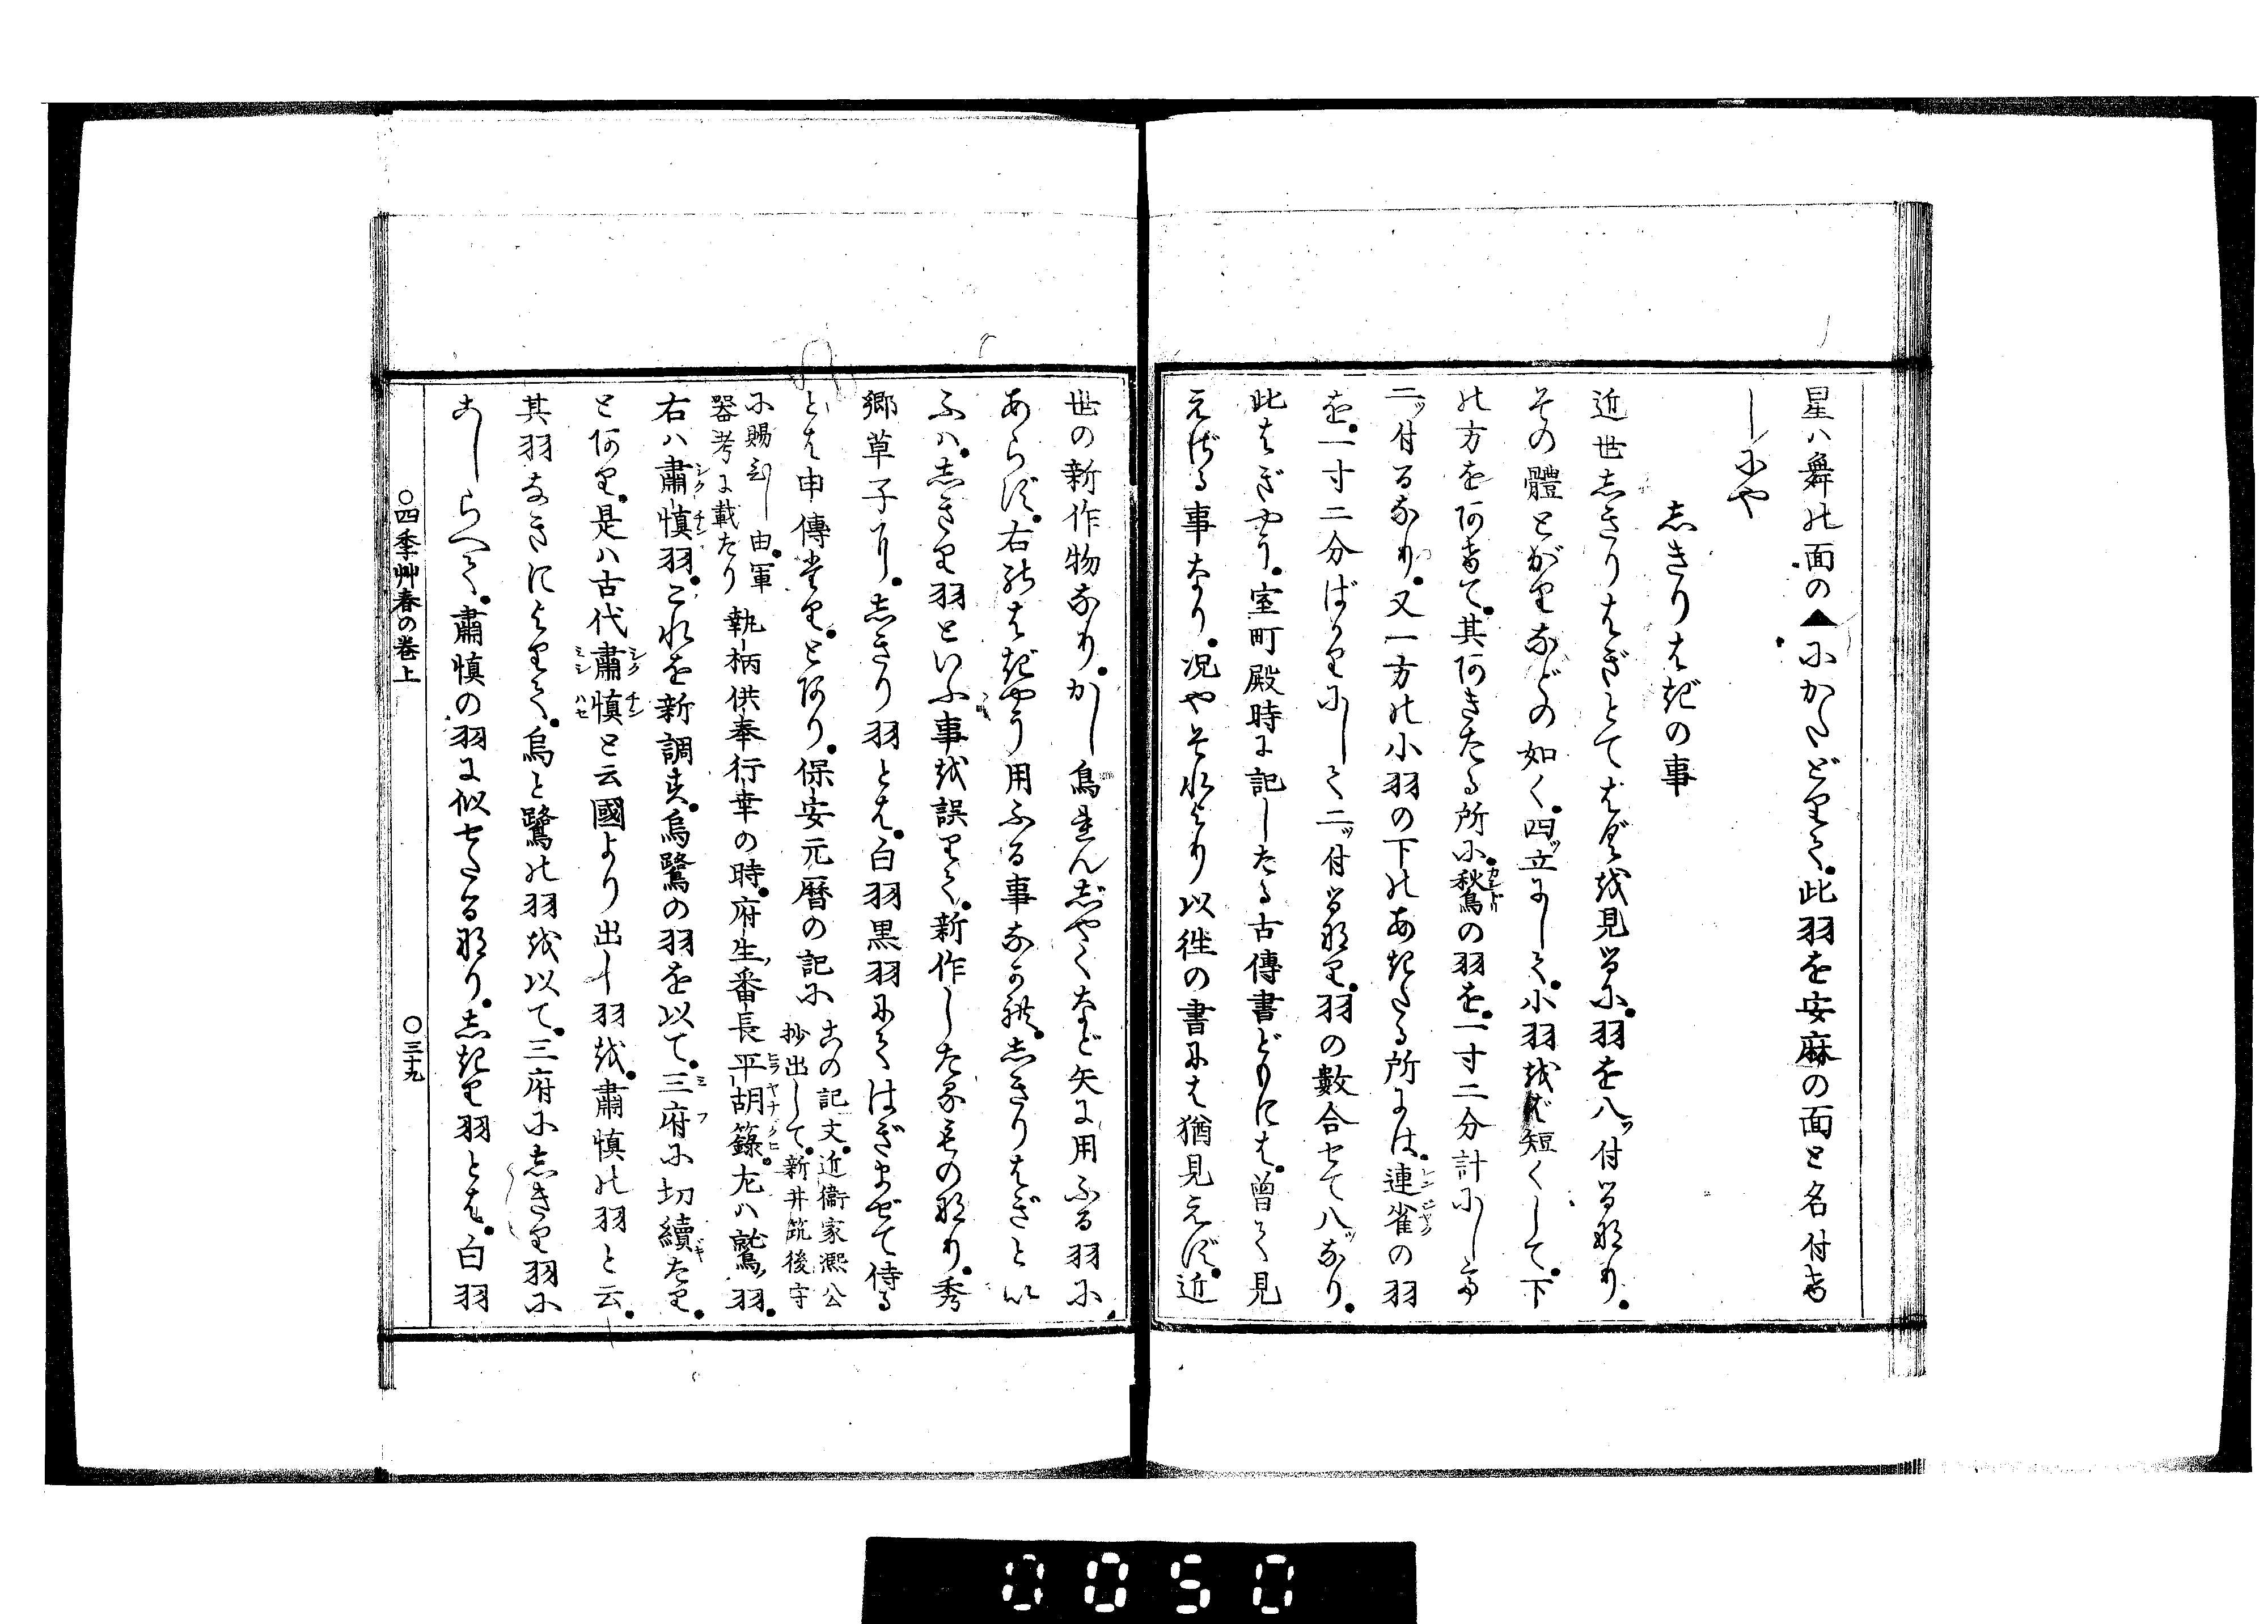 星ハ舞の面の▲にかたどりて此羽を安麻の面と名付け
しにや
志きりはぎの事
近世志きりはぎとてはぐを見るに羽を八ッ付るなり
その體とがりなどの如く四ッ立にして小羽をば短くして下
の方をあけて其あきたる所に秋鳥の羽を一寸二分計にして
二ッ付るなり又一方の小羽の下のあきたる所には連雀の羽
を一寸二分ばかりにして二ッ付るなり羽の數合せて八ッなり
此はぎやう室町殿時に記したる古傳書どもには曽て見
えざる事なり况やそれより以徃の書には猶見えず近
世の新作物なりかし鳥れんじやくなど矢に用ふる羽に
あらず右のはぎやう用ふる事なかれ志きりはぎとい
ふハ志きり羽といふ事を誤りて新作したるものなり秀
郷草子に志きり羽とは白羽黒羽にてはぎまぜて侍る
とは申傳たりとあり保安元暦の記に
この記文近衞家凞公
抄出して新井筑後守
に賜ひし由軍
器考に載たり
執柄供奉行幸の時府生番長平胡籙尤ハ鷲羽
右ハ肅慎羽これを新調す烏鷺の羽を以て三府に切續たり
とあり是ハ古代肅慎と云國より出し羽を肅慎の羽と云
其羽なきによりて烏と鷺の羽を以て三府に志きり羽に
こしらへて肅慎の羽に似せたるなり志きり羽とは白羽
○四季艸春の巻上
○三十九
0050